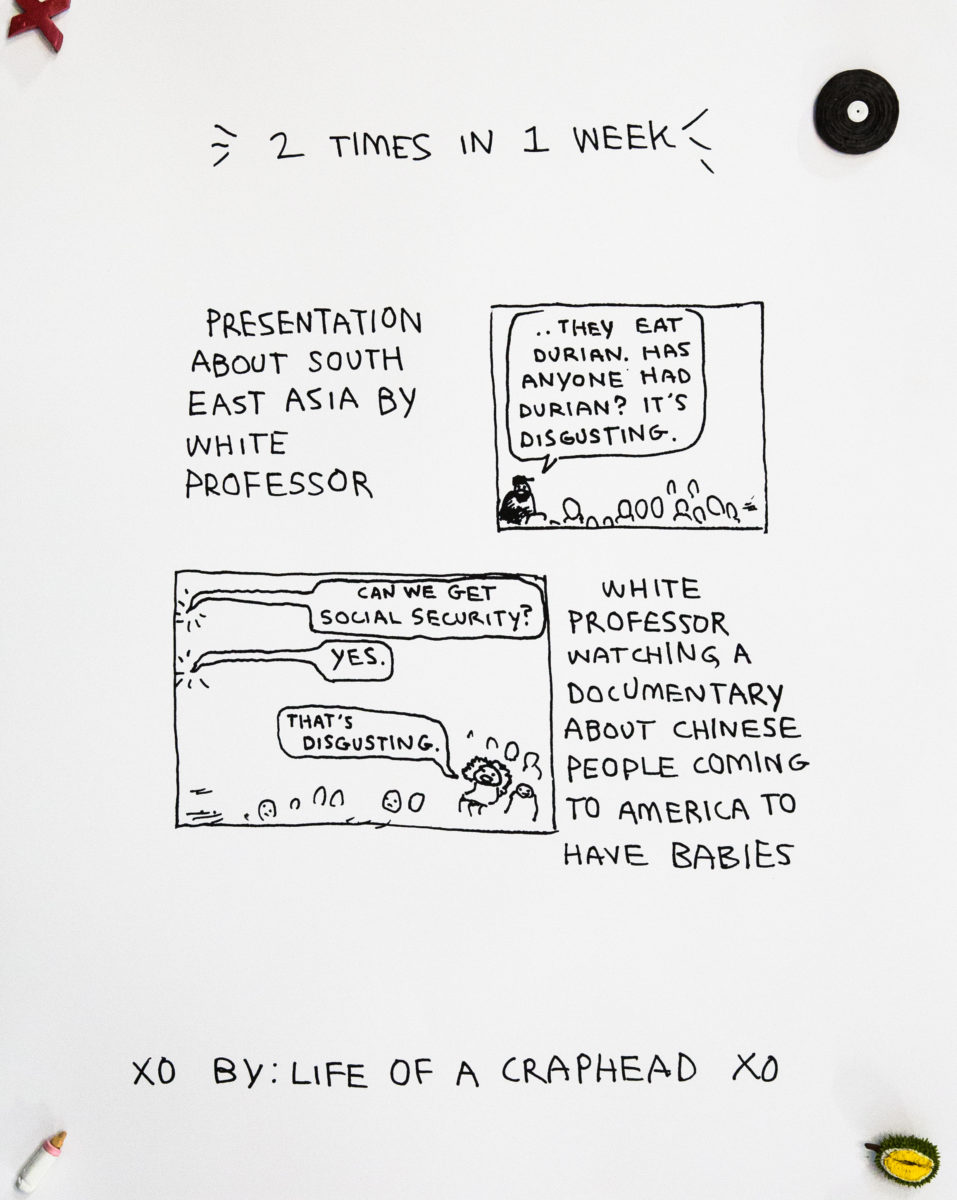 2 TIMES IN 1 WEEK
PRESENTATION
ABOUT SOUTH
EAST ASIA BY
WHITE
PROFESSOR
..THEY EAT
DURIAN. HAS
ANYONE HAD
DURIAN? IT'S
DISGUSTING.
CAN WE GET
SOCIAL SECURITY?
YES.
THAT'S
DISGUSTING.
WHITE
PROFESSOR
WATCHING A
DOCUMENTARY
ABOUT CHINESE
PEOPLE COMING
TO AMERICA TO
HAVE BABIES
XO BY: LIFE OF A CRAPHEAD XO